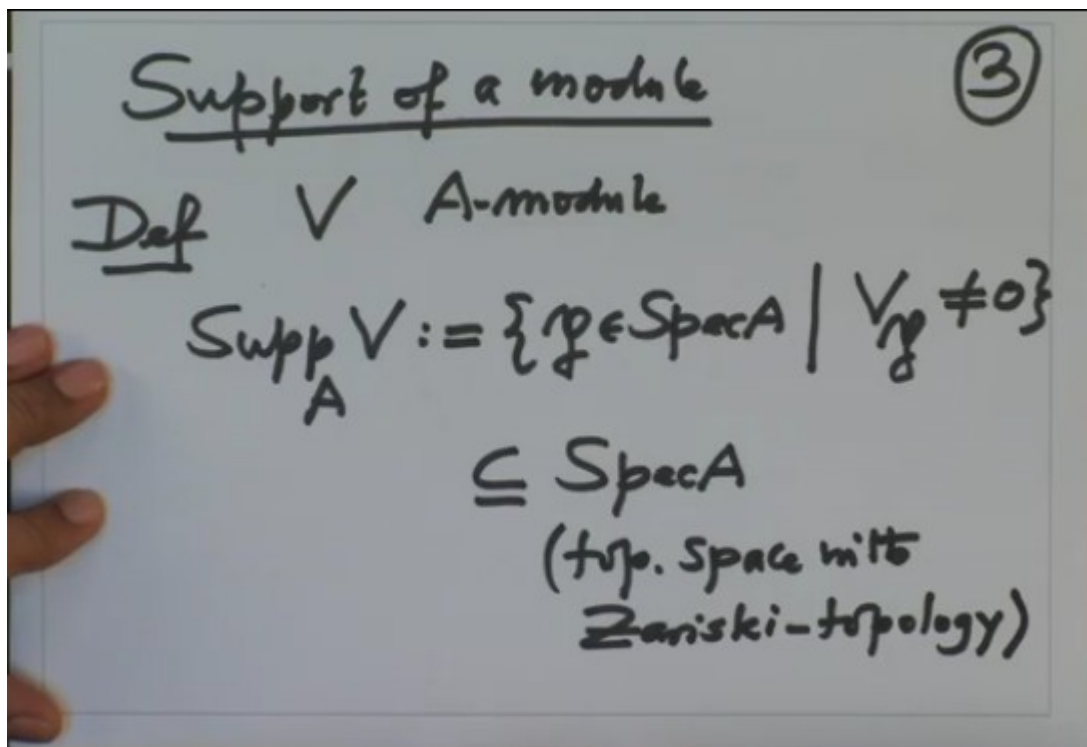 Support of a module ③
Def V A-module
Supp_A V := {𝔭 ∈ Spec A | V_𝔭 ≠ 0}
⊆ Spec A
(top. space with
Zariski-topology)